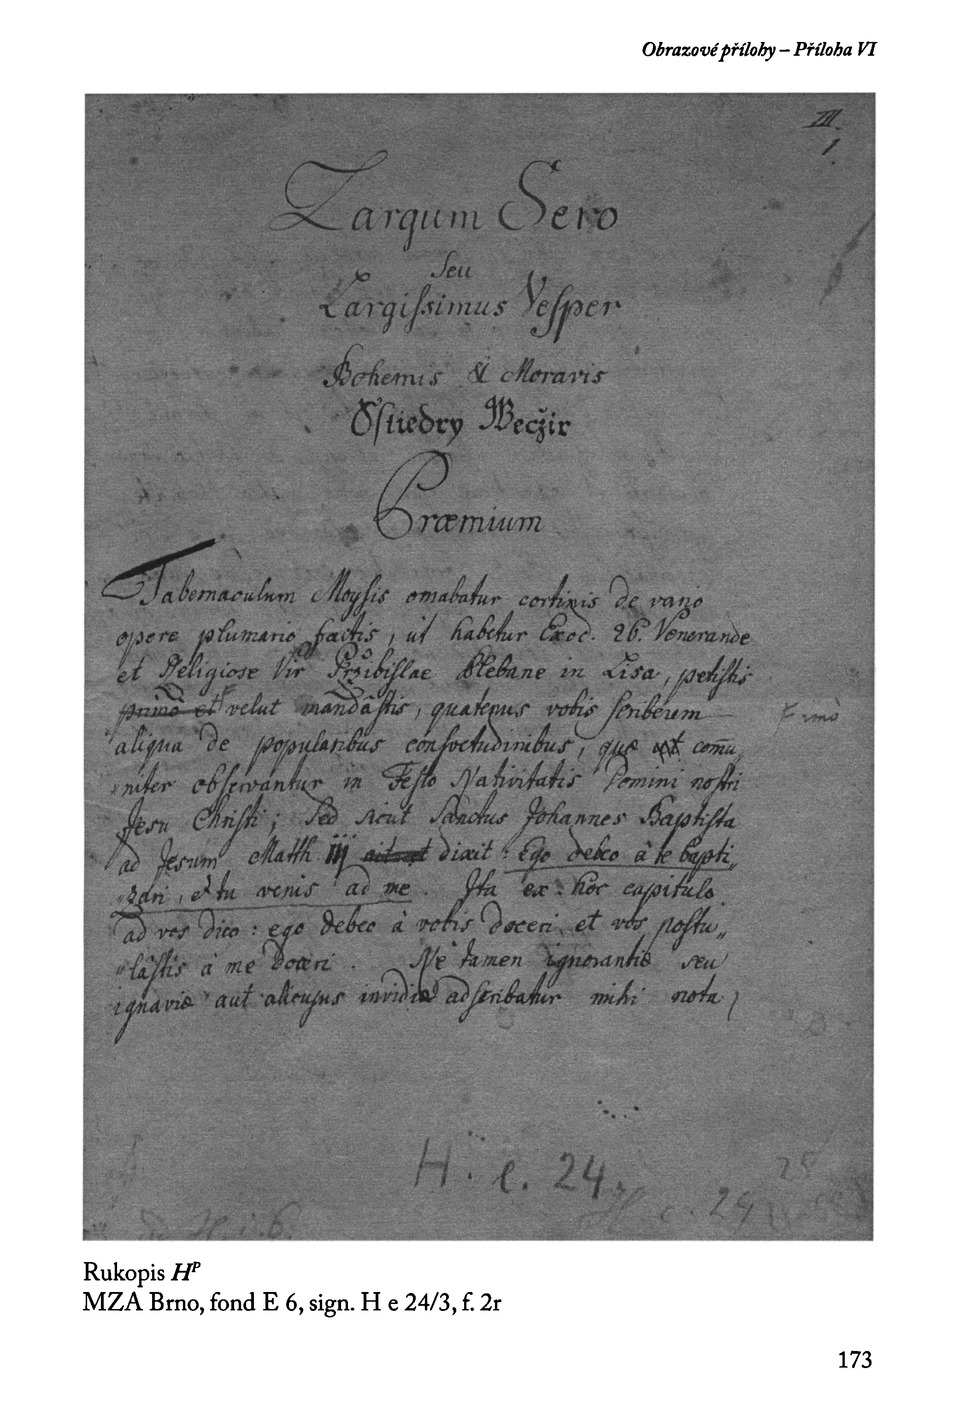 Obrazové přílohy – Příloha VI
III.
1.
Largum Sero
Seu
Largissimus Vesper
Bohemis & Moravis
Sstiedry Weczir
Præmium
Tabernaculum Moysis ornabatur cortinis de vario
opere plumario factis, ut habetur Exod. 26. Venerande
et Religiose Vir Przibislae Plebane in Lisa, petistis
primò et velut mandâstis, quatenus vobis scriberem
F imò
aliqua de popularibus consvetudinibus, quæ comu„
niter observantur in Festo Nativitatis Domini nostri
Jesu Christi; Sed sicut Sanctus Johannes Baptista
ad Jesum Matth iij ait dixit: Ego debeo à te bapti„
zari, et tu venis ad me. Ita ex hôc capitulo
ad vos dico: ego debeo à vobis doceri et vos postu„
„lâstis à me doceri. Ne tamen ignorantiæ seu
ignaviæ aut alicujus invidiæ adscribatur mihi nota,
H. e. 24.
25
H. e. 24
H. i. 6.
Rukopis Hᴾ
MZA Brno, fond E 6, sign. H e 24/3, f. 2r
173